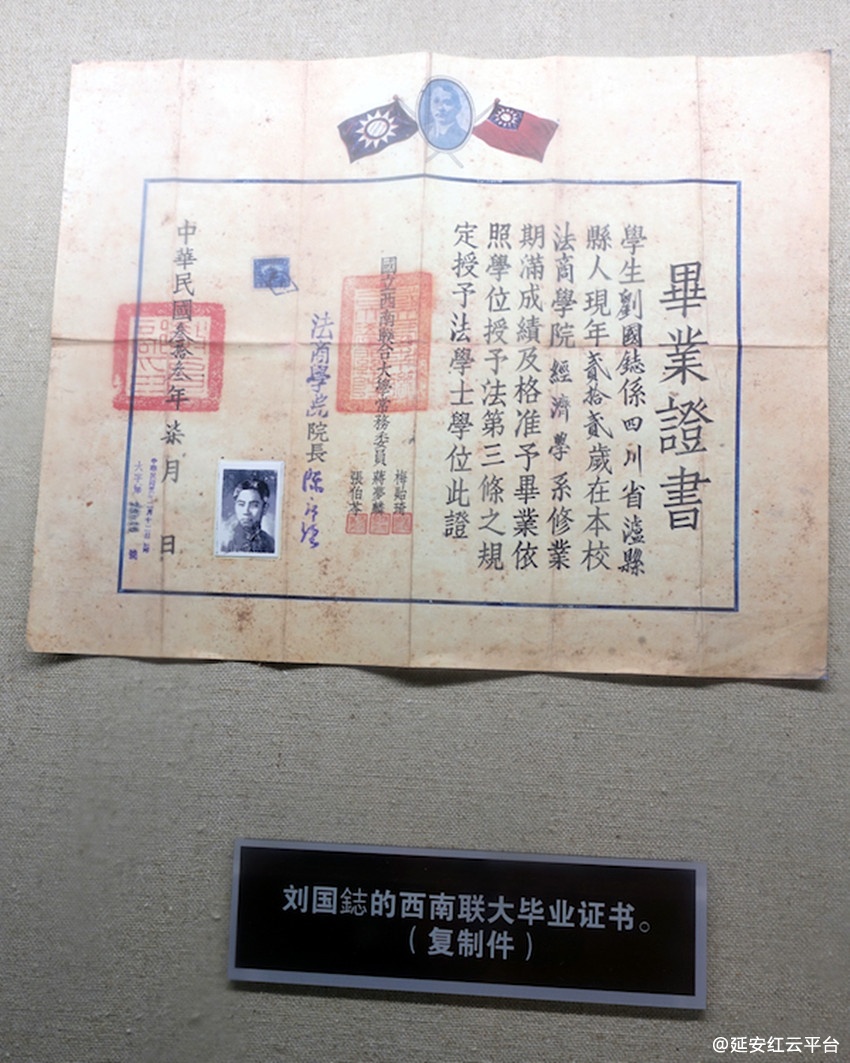 畢業證書
學生劉國鋕係四川省瀘縣
縣人現年貳拾貳歲在本校
法商學院經濟學系修業
期滿成績及格准予畢業依
照學位授予法第三條之規
定授予法學士學位此證
國立西南聯合大學常務委員
梅貽琦
蔣夢麟
張伯苓
法商學院院長
中華民國叁拾叁年柒月 日
刘国鋕的西南联大毕业证书。
（复制件）
@延安红云平台